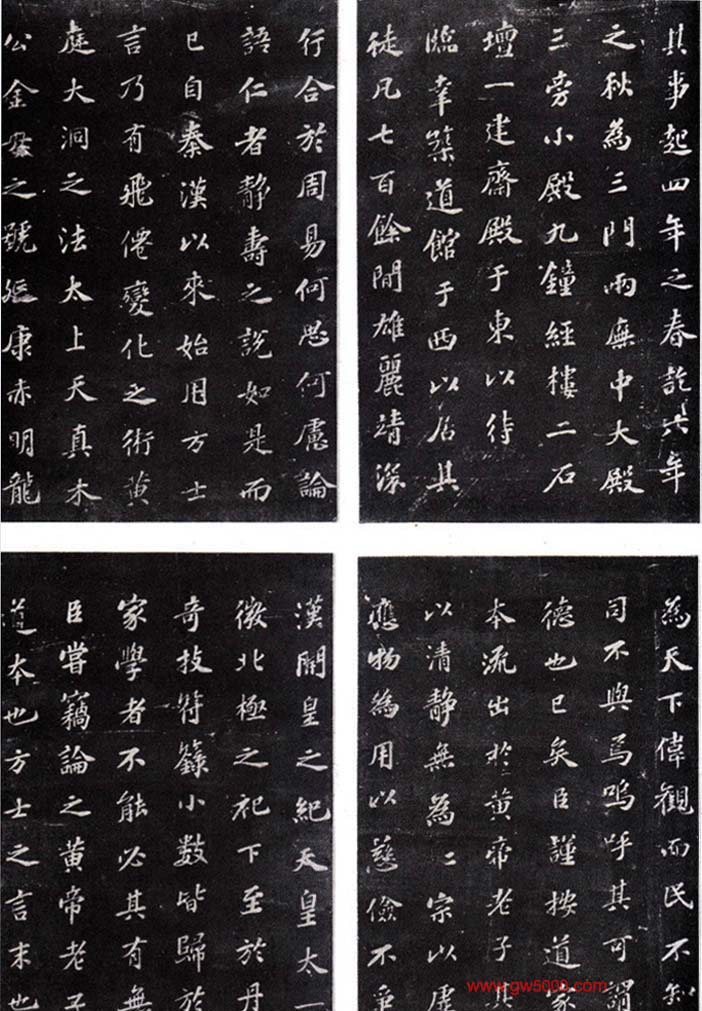 其事起四年之春訖六年
之秋為三門兩廡中大殿
三旁小殿九鐘經樓二石
壇一建齋殿于東以待
臨幸築道館于西以居其
徒凡七百餘間雄麗靖深
為天下偉觀而民不知
司不與焉嗚呼其可謂
德也已矣臣謹按道家
本流出於黃帝老子其
以清靜無為〻宗以虛
應物為用以慈儉不爭
行合於周易何思何慮論
語仁者靜壽之說如是而
已自秦漢以來始用方士
言乃有飛僊變化之術黃
庭大洞之法太上天真木
公金母之號延康赤明龍
漢開皇之紀天皇太一
微北極之祀下至於丹
奇技符籙小數皆歸於
家學者不能必其有無
臣嘗竊論之黃帝老子
道本也方士之言末也
www.gw5000.com